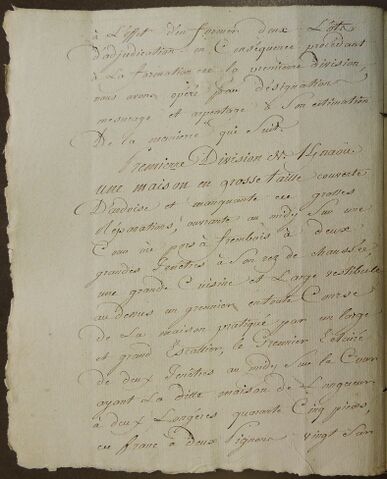 à L'effet d'en former deux Lots
d'adjudication en Conséquence procédant
à La formation de la premiere division,
nous avons opéré par désignation
mesurage et arpentage & Son estimation
De la maniere que Suit.
Premierre Division
une maison en grosse taille couverte
D'ardoise et manquante de grosses
Réparations, ouvrante au midy Sur une
Cour à deux
grandes fenêtres à Son rez de chaussée,
une grande Cuisine et Large vestibule
au dessus un grenier Entoute
De La maison pratiqué par un large
et grand Escallier, le Grennier Eclairé
de deux fenêtres au midy Sur la Cour
ayant La ditte maison de Longueur
à deux Longères quarante Cinq pieds,
de franc à deux Pignons vingt Sur